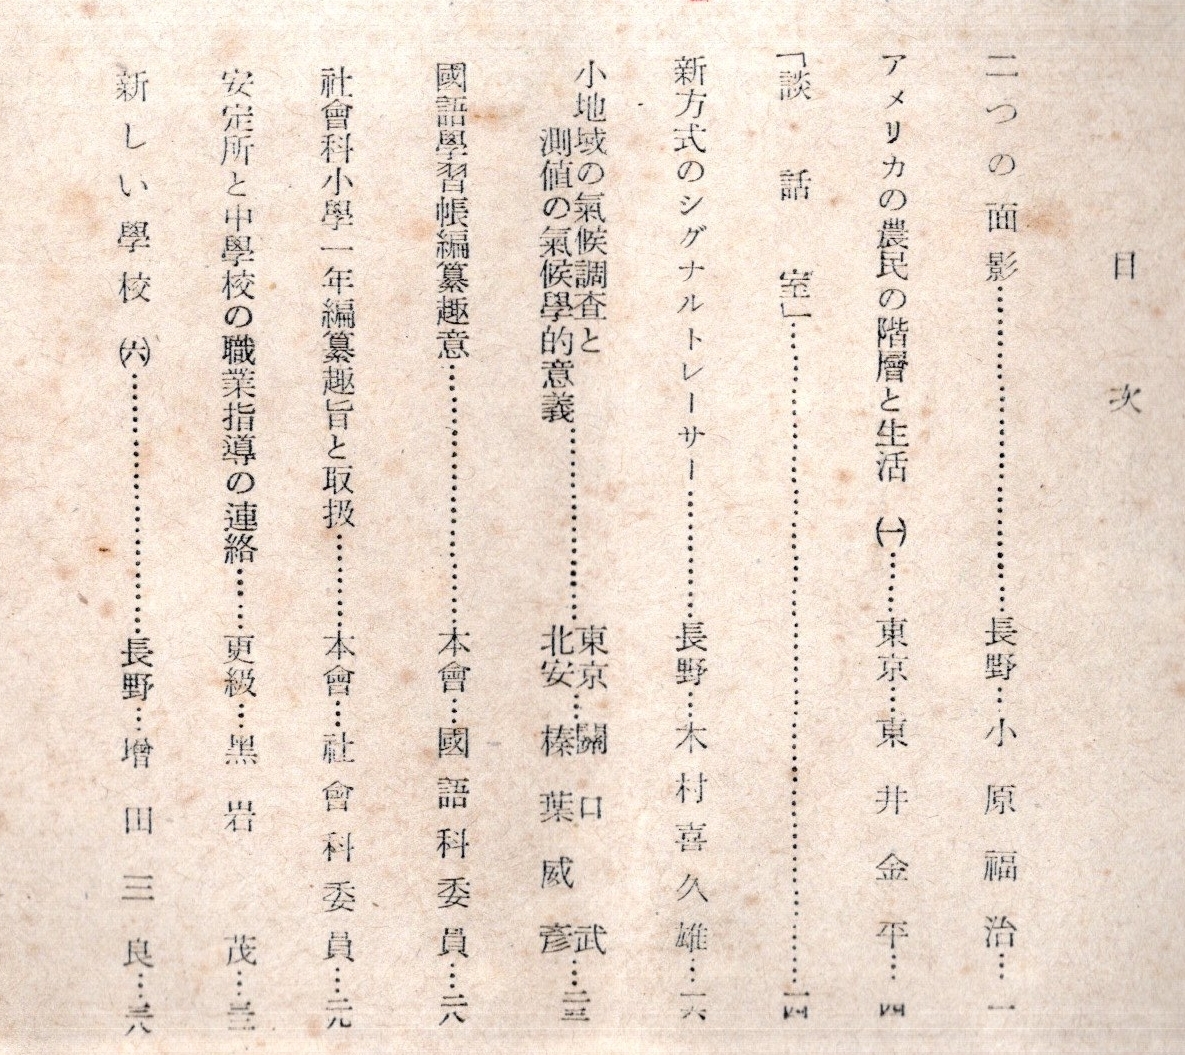 目次
二つの面影……長野…小原福治…一
アメリカの農民の階層と生活 ㈠……東京…東井金平…四
「談話室」……一四
新方式のシグナルトレーサー……長野…木村喜久雄…一六
小地域の氣候調査と……東京…關口武
測値の氣候學的意義……北安…榛葉威彥…二三
國語學習帳編纂趣意……本會…國語科委員…二八
社會科小學一年編纂趣旨と取扱……本會…社會科委員…二九
安定所と中學校の職業指導の連絡……更級…黑岩茂…三三
新しい學校 ㈥……長野…增田三良…三八